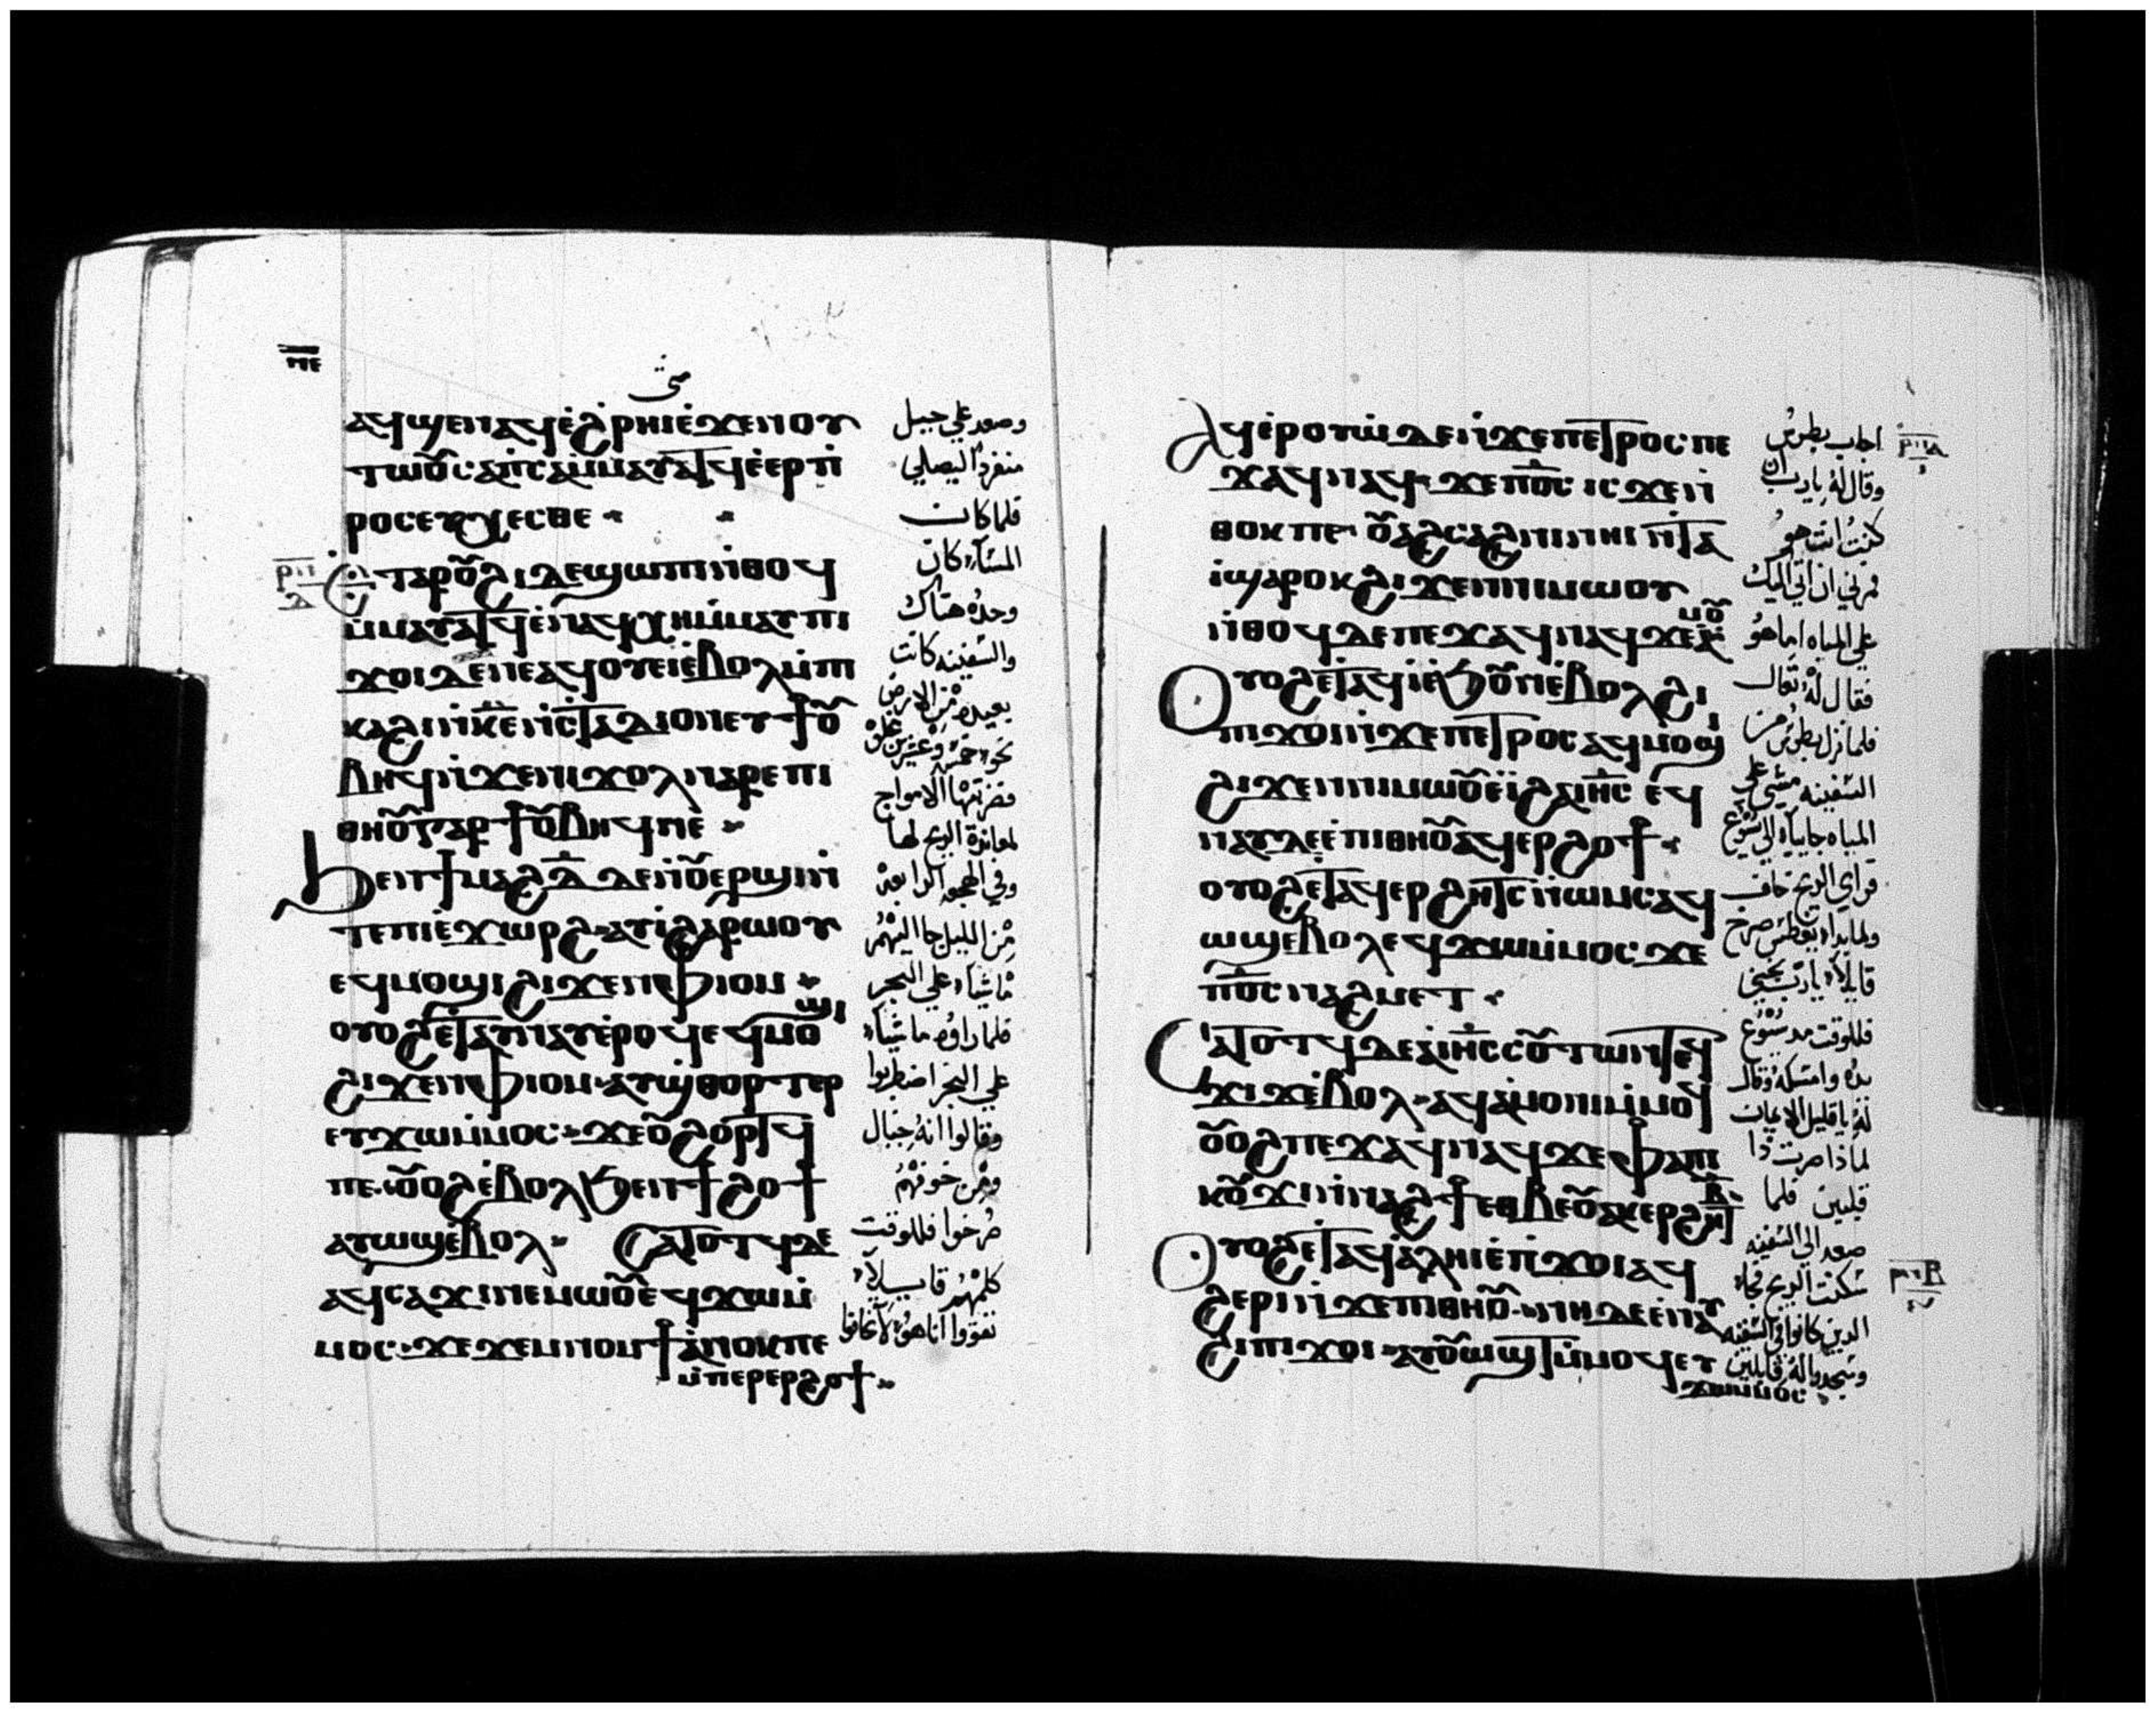 ⲡⲉ
متى
ⲁϥϣⲉⲛⲁϥⲉ̇ϩ̇ⲣⲏⲓⲉ̇ϫⲉⲛⲟⲩ
ⲧⲱⲟ̃ⲥⲁⲡ̇ⲥⲁⲙ̇ⲙⲁⲩⲁⲧϥⲉ̇ⲉⲣⲡ̇
ⲣⲟⲥⲉⲩⲭⲉⲥⲑⲉ
ⲉⲧⲁⲣⲟ̃ϩⲓⲇⲉϣⲱⲡⲓⲛ̇ⲑⲟϥ
ⲙ̇ⲙⲁⲩⲁⲧϥⲉ̇ⲛⲁϥⲭⲏⲙ̇ⲙⲁⲩⲡⲓ
ϫⲟⲓⲇⲉⲛⲉⲁϥⲟⲩⲉⲓⲉ̇ⲃⲟⲗⲙ̇ⲡⲓ
ⲕⲁϩⲓⲛ̇ⲕ̅ⲉ̅ⲛ̇ⲥⲧⲁⲇⲓⲟⲛⲉⲩϯⲟ̃
ⲃⲏϥⲛ̇ϫⲉⲛⲓϫⲟⲗⲛⲁⲣⲉⲡⲓ
ⲑⲏⲟ̃ⲅⲁⲣϯⲟ̃ⲃⲏϥⲡⲉ
ϧⲉⲛϯⲙⲁϩⲇ̅ⲇⲉⲛ̇ⲟ̃ⲉⲣϣⲓⲛ̇
ⲧⲉⲡⲓⲉ̇ϫⲱⲣϩⲁϥⲓ̇ϩⲁⲣⲱⲟⲩ
ⲉϥⲙⲟϣⲓϩⲓϫⲉⲛⲫⲓⲟⲙ
ⲟⲩⲟϩⲉⲧⲁⲩⲛⲁⲩⲉ̇ⲣⲟϥⲉϥⲙⲟϣⲓ
ϩⲓϫⲉⲛⲫⲓⲟⲙⲁⲩϣ̇ⲑⲟⲣⲧⲉⲣ
ⲉⲩϫⲱⲙ̇ⲙⲟⲥϫⲉⲟ̃ϩⲟⲣⲧϥ
ⲡⲉⲟ̃ⲟϩⲉ̇ⲃⲟⲗϧⲉⲛϯϩⲟϯ
ⲁⲩⲱϣⲉ̇ⲃⲟⲗ ⲥⲁⲧⲟⲧϥⲇⲉ
ⲁϥⲥⲁϫⲓⲛⲉⲙⲱⲟ̃ⲉϥϫⲱⲙ̇
ⲙⲟⲥϫⲉϫⲉⲙⲛⲟⲙϯⲁ̇ⲛⲟⲕⲡⲉ
ⲙ̇ⲡⲉⲣⲉⲣϩⲟϯ
وصعد علي جبيل
منفردًا ليصلي
فلما كان
المسآء كان
وحده هناك
والسفينه كانت
بعيده من الارض
نحو خمسة وعشرين غلوة
فضربتها الامواج
لمعاندة الريح لها
وفي الهجعه الرابعه
من الليل جا اليهم
ماشيا علي البحر
فلما راوه ماشيًا
علي البحر اضطربوا
وقالوا انه خيال
ومن خوفهم
صرخوا فللوقت
كلمهم قايـلًا
تقووا انا هو لا تخافوا
ⲁϥⲉ̇ⲣⲟⲩⲱ̇ⲇⲉⲛ̇ϫⲉⲡⲉⲧⲣⲟⲥⲡⲉ
ϫⲁϥⲛⲁϥϫⲉⲡⲟ̅ⲥ̅ⲓⲥϫⲉⲛ̇
ⲑⲟⲕⲡⲉⲟ̃ⲁϩⲥⲁϩⲛⲓⲛⲏⲓⲛ̇ⲧⲁ
ⲓ̇ϣⲁⲣⲟⲕϩⲓϫⲉⲛⲛⲓⲙⲱⲟⲩ
ⲛ̇ⲑⲟϥⲇⲉⲡⲉϫⲁϥⲛⲁϥϫⲉⲁ̇ⲙⲟ̃
ⲟⲩⲟϩⲉⲧⲁϥⲓ̇ⲉ̇ϧⲟ̃ⲛⲉ̇ⲃⲟⲗϩⲓ
ⲡⲓϫⲟⲓⲛ̇ϫⲉⲡⲉⲧⲣⲟⲥⲁϥⲙⲟϣⲓ
ϩⲓϫⲉⲛⲛⲓⲙⲱⲟ̃ⲉⲓ̇ϩⲁⲓ̅ⲏ̅ⲥ̅ ⲉϥ
ⲛⲁⲩⲇⲉⲉ̇ⲡⲓⲑⲏⲟ̃ⲁϥⲉⲣϩⲟϯ
ⲟⲩⲟϩⲉⲧⲁϥⲉⲣϩⲏⲧⲥⲛ̇ⲱⲙⲥⲁϥ
ⲱϣⲉ̇ⲃⲟⲗⲉϥϫⲱⲙ̇ⲙⲟⲥϫⲉ
ⲡⲟ̅ⲥ̅ⲛⲁϩⲙⲉⲧ
ⲥⲁⲧⲟⲧϥⲇⲉⲁⲓ̅ⲏ̅ⲥ̅ⲥⲟ̃ⲧⲱⲛⲧⲉϥ
ϫⲓϫⲉ̇ⲃⲟⲗⲁϥⲁ̇ⲙⲟⲛⲓⲙ̇ⲙⲟϥ
ⲟ̃ⲟϩⲡⲉϫⲁϥⲛⲁϥϫⲉⲫⲁⲡⲓ
ⲕⲟ̃ϫⲓⲛ̇ⲛⲁϩϯⲉⲑⲃⲉⲟ̃ⲁⲕⲉⲣϩⲏⲧⲃ̅
ⲟⲩⲟϩⲉⲧⲁϥⲁ̇ⲗⲏⲓⲉ̇ⲡⲓϫⲟⲓⲁϥ
ϩⲉⲣⲓⲛ̇ϫⲉⲡⲓⲑⲏⲟ̃ⲛⲏⲇⲉⲉ̇ⲛⲁⲩ
ϩⲓⲡⲓϫⲟⲓⲁⲩⲟ̃ⲱϣⲧⲙ̇ⲙⲟϥⲉⲩ
ϫⲱⲙ̇ⲙⲟⲥ
اجاب بطرس
وقال له يا رب ان
كنت انت هو
مرني ان اتي اليك
علي المياه اما هو
فقال له تعال
فلما نزل بطرس من
السفينه مشي علي
المياه جاييآ الي يسوع
فراي الريح خاف
ولما بدا يغطس صرخ
قايلآ يا رب نجيني
فللوقت مد يسوع
يده وامسكه وقال
له يا قليل الايمان
لماذا صرت ذا
قلبين فلما
صعد الي السفينه
سكنت الريح فجاء
الدين كانوا في السفينه
وسجدوا له قايلين